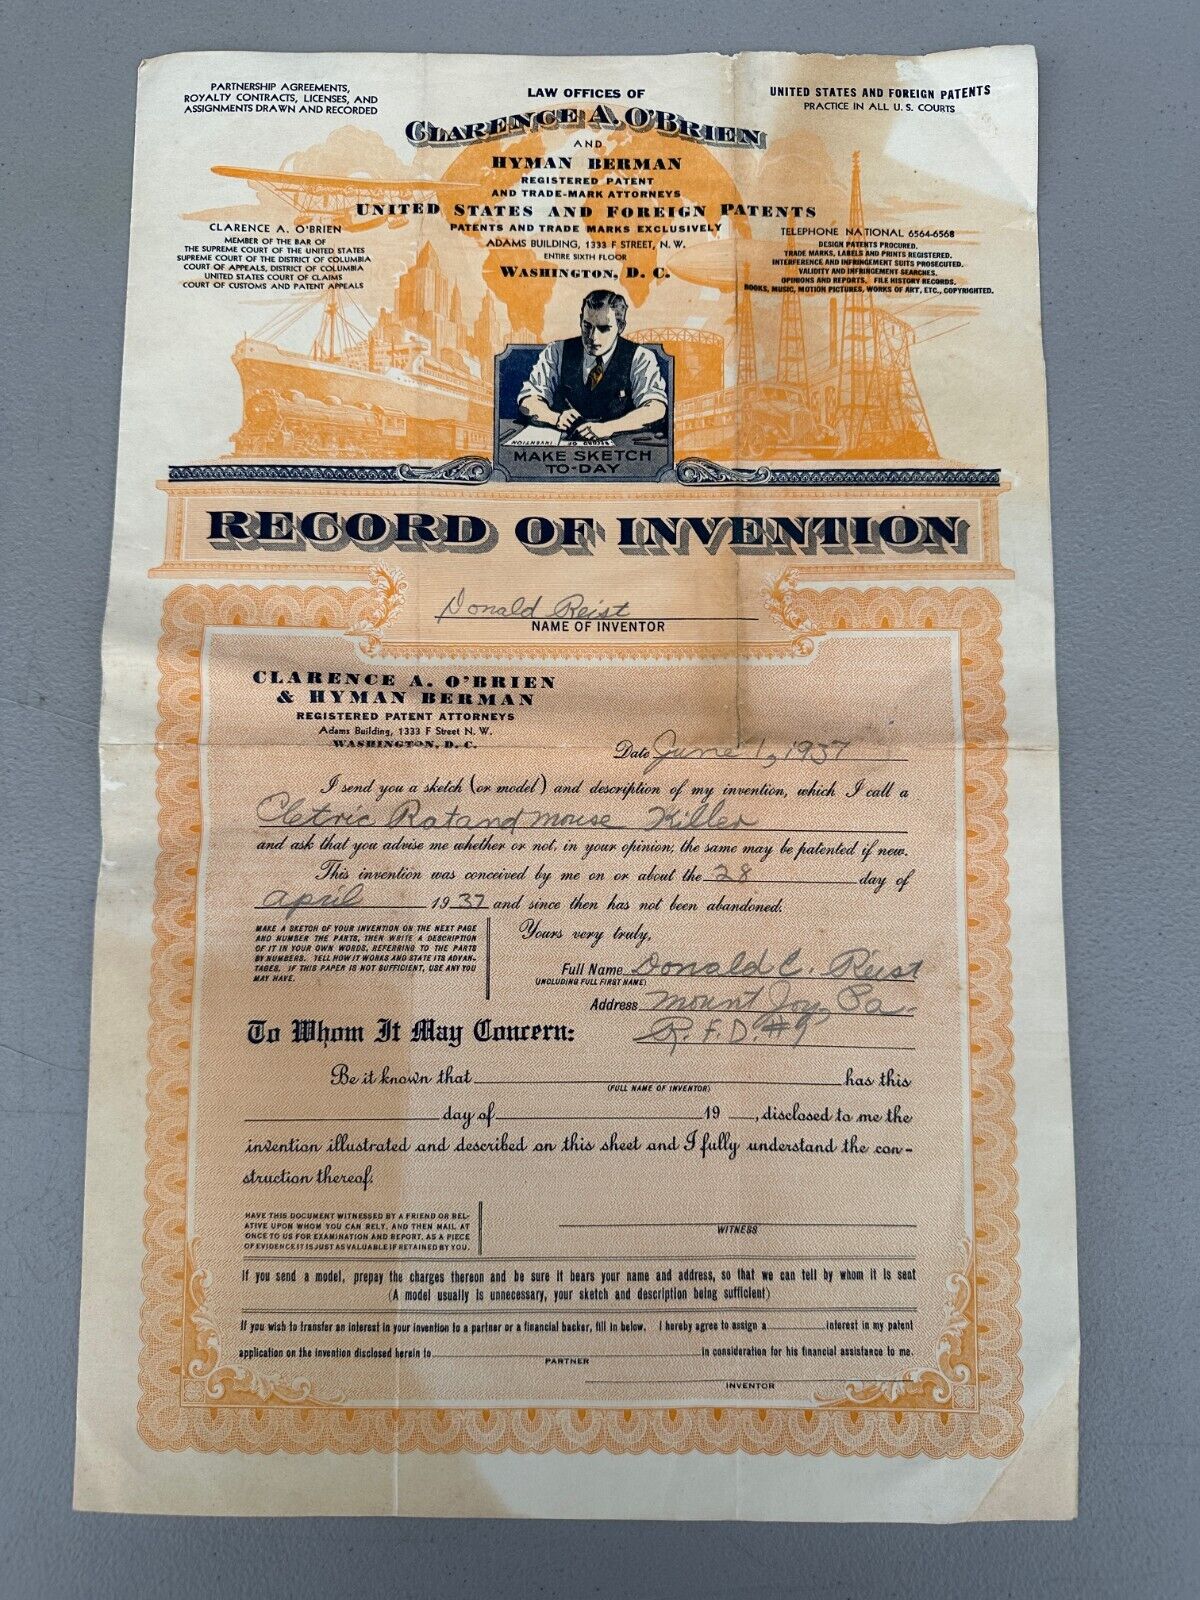 PARTNERSHIP AGREEMENTS,
ROYALTY CONTRACTS, LICENSES, AND
ASSIGNMENTS DRAWN AND RECORDED
LAW OFFICES OF
CLARENCE A. O'BRIEN
AND
HYMAN BERMAN
REGISTERED PATENT
AND TRADE-MARK ATTORNEYS
UNITED STATES AND FOREIGN PATENTS
PATENTS AND TRADE MARKS EXCLUSIVELY
ADAMS BUILDING, 1333 F STREET, N. W.
ENTIRE SIXTH FLOOR
WASHINGTON, D. C.
UNITED STATES AND FOREIGN PATENTS
PRACTICE IN ALL U.S. COURTS
CLARENCE A. O'BRIEN
MEMBER OF THE BAR OF
THE SUPREME COURT OF THE UNITED STATES
SUPREME COURT OF THE DISTRICT OF COLUMBIA
COURT OF APPEALS, DISTRICT OF COLUMBIA
UNITED STATES COURT OF CLAIMS
COURT OF CUSTOMS AND PATENT APPEALS
TELEPHONE NATIONAL 6564-6568
DESIGN PATENTS PROCURED.
TRADE MARKS, LABELS AND PRINTS REGISTERED.
INTERFERENCE AND INFRINGEMENT SUITS PROSECUTED.
VALIDITY AND INFRINGEMENT SEARCHES.
OPINIONS AND REPORTS. FILE HISTORY RECORDS.
BOOKS, MUSIC, MOTION PICTURES, WORKS OF ART, ETC., COPYRIGHTED.
RECORD OF INVENTION
MAKE SKETCH
TO-DAY
RECORD OF INVENTION
Donald Reist
NAME OF INVENTOR
CLARENCE A. O'BRIEN
& HYMAN BERMAN
REGISTERED PATENT ATTORNEYS
Adams Building, 1333 F Street N. W.
WASHINGTON, D. C.
Date June 1, 1937
I send you a sketch (or model) and description of my invention, which I call a
Eletric Rat and mouse Killer
and ask that you advise me whether or not, in your opinion, the same may be patented if new.
This invention was conceived by me on or about the 28 day of
april 1937 and since then has not been abandoned.
MAKE A SKETCH OF YOUR INVENTION ON THE NEXT PAGE
AND NUMBER THE PARTS, THEN WRITE A DESCRIPTION
OF IT IN YOUR OWN WORDS, REFERRING TO THE PARTS
BY NUMBERS. TELL HOW IT WORKS AND STATE ITS ADVAN-
TAGES. IF THIS PAPER IS NOT SUFFICIENT, USE ANY YOU
MAY HAVE.
Yours very truly,
Full Name Donald C. Reist
(INCLUDING FULL FIRST NAME)
Address Mount Joy, Pa.
R.F.D. #1
To Whom It May Concern:
Be it known that has this
(FULL NAME OF INVENTOR)
day of 19 , disclosed to me the
invention illustrated and described on this sheet and I fully understand the con-
struction thereof.
HAVE THIS DOCUMENT WITNESSED BY A FRIEND OR REL-
ATIVE UPON WHOM YOU CAN RELY, AND THEN MAIL AT
ONCE TO US FOR EXAMINATION AND REPORT. AS A PIECE
OF EVIDENCE IT IS JUST AS VALUABLE IF RETAINED BY YOU.
WITNESS
If you send a model, prepay the charges thereon and be sure it bears your name and address, so that we can tell by whom it is sent
(A model usually is unnecessary, your sketch and description being sufficient)
If you wish to transfer an interest in your invention to a partner or a financial backer, fill in below. I hereby agree to assign a interest in my patent
application on the invention disclosed herein to in consideration for his financial assistance to me.
PARTNER
INVENTOR